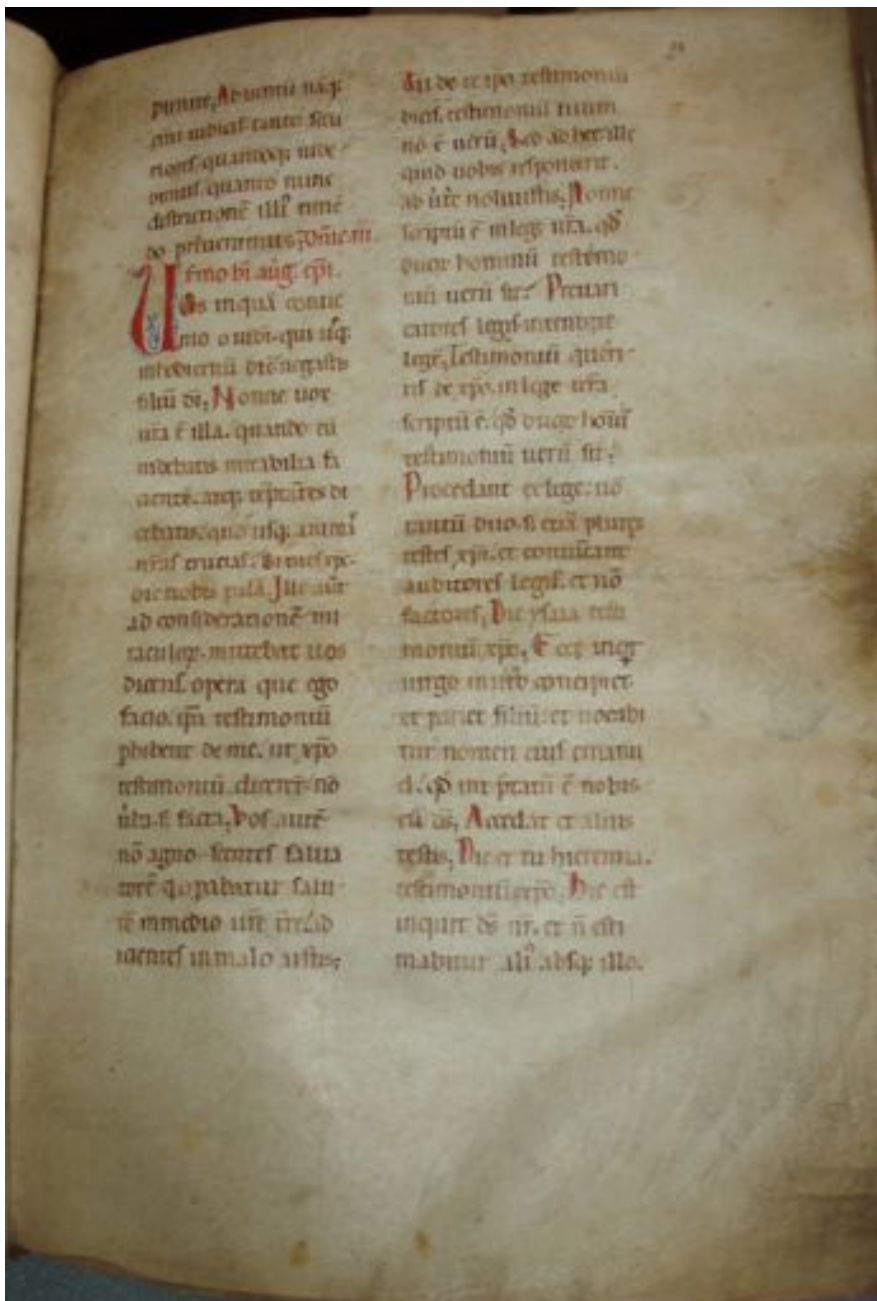 pienite, Aduentū nāq;
eius iudicis tanto secu
riores quantoq; uide
bimus quanto nunc
districtionē illi⁹ timē
do preuenimus, Dñic. iii.
Sermo bi aug. epi.
Uos inquā conue
nio o iudei. qui usq;
inhodiernū diē negastis
filiū di, Nonne uox
urā ē illa. quando eū
uidebatis mirabilia fa
cientē. atq; tēptātes di
cebatis. quo usq; animas
nrās tollis. Si tu es xpc.
dic nobis palā. Ille aūt
ad considerationē mi
raculoꝝ. mittebat uos
dicens. opera que ego
facio. ipā testimoniū
phibent de me. ut xpo
testimoniū dicerēt nō
uba. sꝫ facta, Vos autē
nō agnoscentes salua
torē q opabatur salu
tē in medio urē trē. ad
icientes in malo aistis;
Tu de te ipō testimoniū
dicis. testimoniū tuum
nō ē uerū, Sed ad hec ille
quid uobis responderit.
aduūte noluistis, Nonne
scriptū ē in lege urā. qđ
duoꝝ hominū testimo
niū uerū sit? Preuari
catores legis intendite
legē, Testimoniū queri
tis de xpo. in lege urā
scriptū ē. qđ duoꝝ homī
testimoniū uerū sit;
Procedant ex lege. nō
tantū duo. sꝫ etiā plures
testes xpi. et conuincant
auditores legis. et nō
factores, Dic ysaia testi
moniū xpo, Ecce inqt
uirgo in utō concipiet
et pariet filiū. et uocabi
tur nomen eius emanu
el. qđ int̄ptatū ē nobis
cū ds, Accedat et alius
testis, Dic et tu hieremia.
testimoniū xpo, Hic est
inquit ds nr. et ñ esti
mabitur ali⁹ absq; illo.